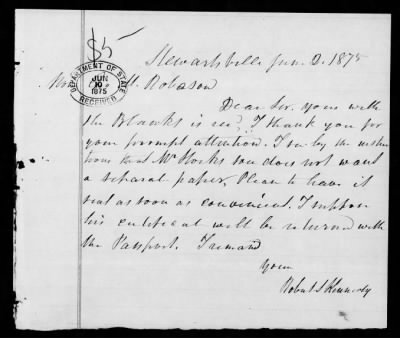 $5
Stewartsville Jun 2. 1875
DEPARTMENT OF STATE
JUN
10
1875
RECEIVED
M. Robeson
Dear Sir. yours with
the Blanks is recd. I thank you for
your prompt attention. I see by the instruc
tions that Mr Hocks son does not want
a separat paper, Pleas to have it
sent as soon as convenient. I suppose
his certificat will be returned with
the Passport. I remain
Yours
Robert S Kennedy